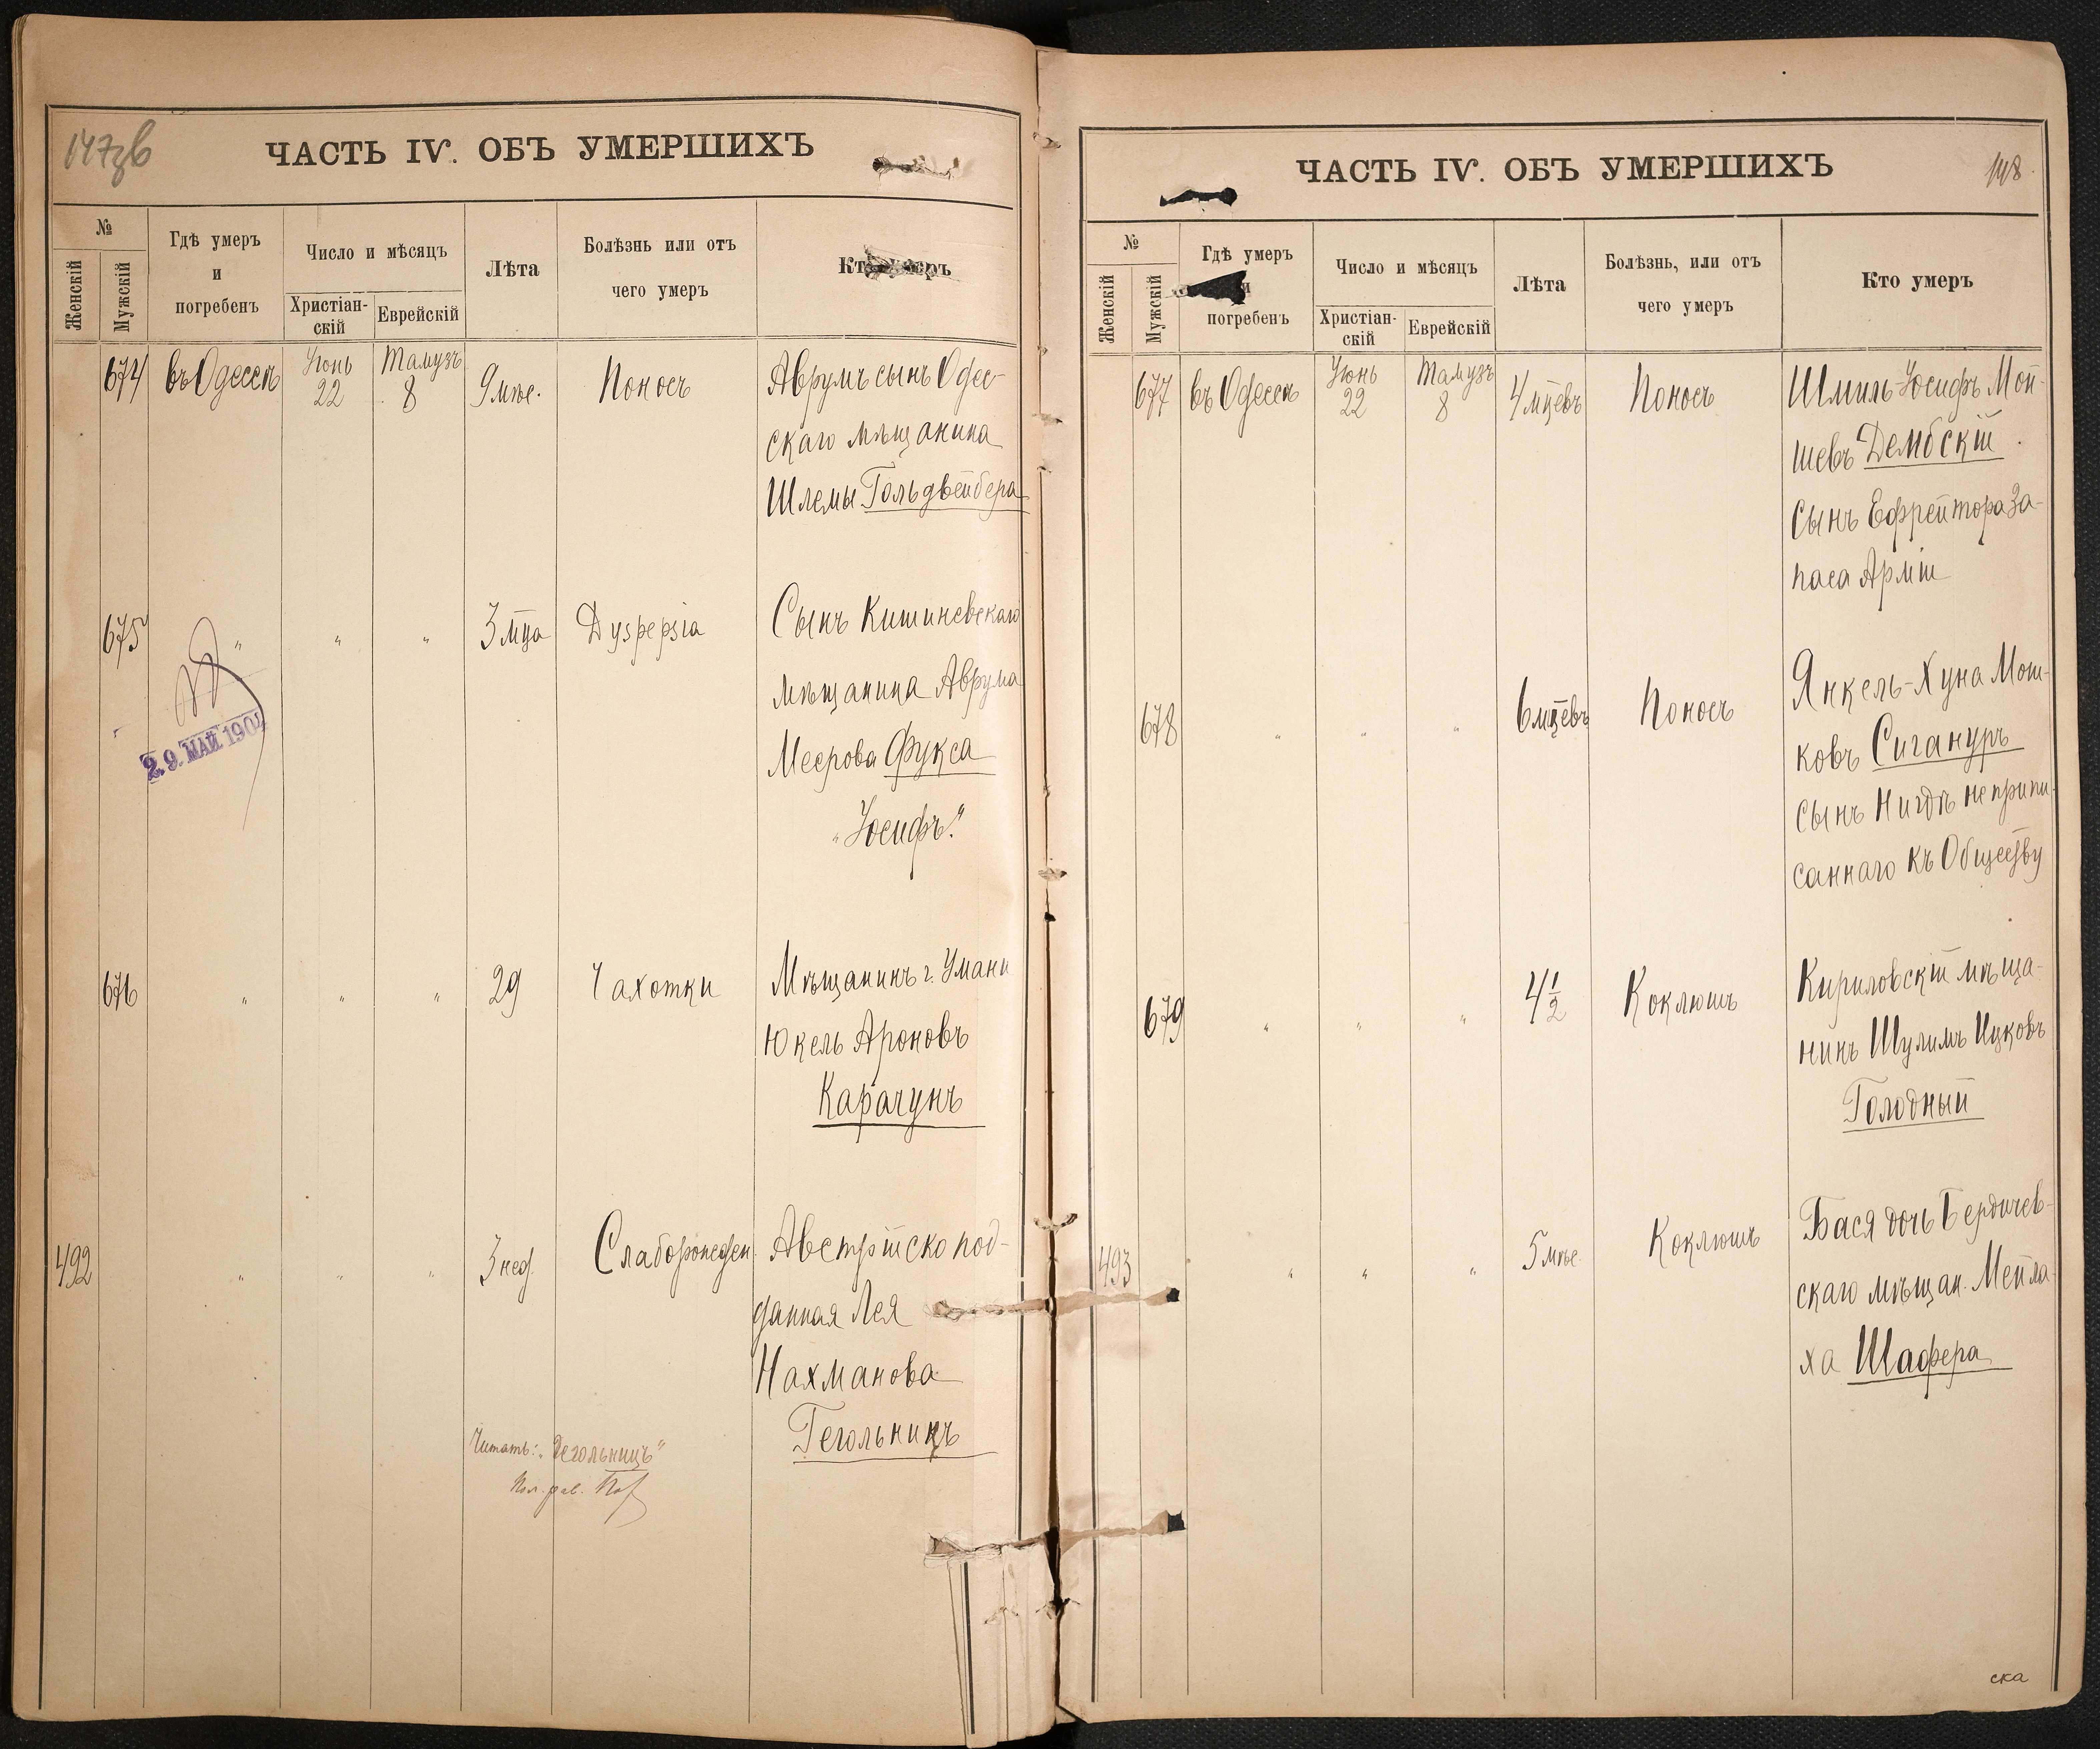 147зв
ЧАСТЬ IV. ОБЪ УМЕРШИХЪ
№
Женскій
Мужскій
Гдѣ умеръ
и
погребенъ
Число и мѣсяцъ
Христіан-
скій
Еврейскій
Лѣта
Болѣзнь или отъ
чего умеръ
Кто умеръ
674 въ Одессѣ Іюнь 22 Тамузъ 8 9 мѣс. Поносъ Аврумъ сынъ Одес-
скаго мѣщанина
Шлемы Гольдвейбера
675 " " " 3 мца Dyspepsia Сынъ Кишиневскаго
мѣщанина Аврума
Меерова Фукса
"Іосифъ."
29. МАЙ 1904
676 " " " 29 Чахотки Мѣщанинъ г. Умани
Юкель Ароновъ
Карачунъ
492 " " " 3 нед. Слаборожден. Австрійско под-
данная Лея
Нахманова
Гегольницъ
Читать: "Гегольницъ"
148
ЧАСТЬ IV. ОБЪ УМЕРШИХЪ
№
Женскій
Мужскій
Гдѣ умеръ
и
погребенъ
Число и мѣсяцъ
Христіан-
скій
Еврейскій
Лѣта
Болѣзнь, или отъ
чего умеръ
Кто умеръ
677 въ Одессѣ Іюнь 22 Тамузъ 8 4 мцевъ Поносъ Шмиль-Іосифъ Мой-
шевъ Дембскій.
Сынъ Ефрейтора За-
паса Арміи
678 " " " 6 мцевъ Поносъ Янкель-Хуна Мош-
ковъ Сигануръ
сынъ Нигдѣ не припи-
саннаго къ Обществу
679 " " " 4 1/2 Коклюшъ Кириловскій мѣща-
нинъ Шулимъ Ицковъ
Голодный
493 " " " 5 мѣс. Коклюшъ Бася дочь Бердичев-
скаго мѣщан. Мейла-
ха Шафера
ска